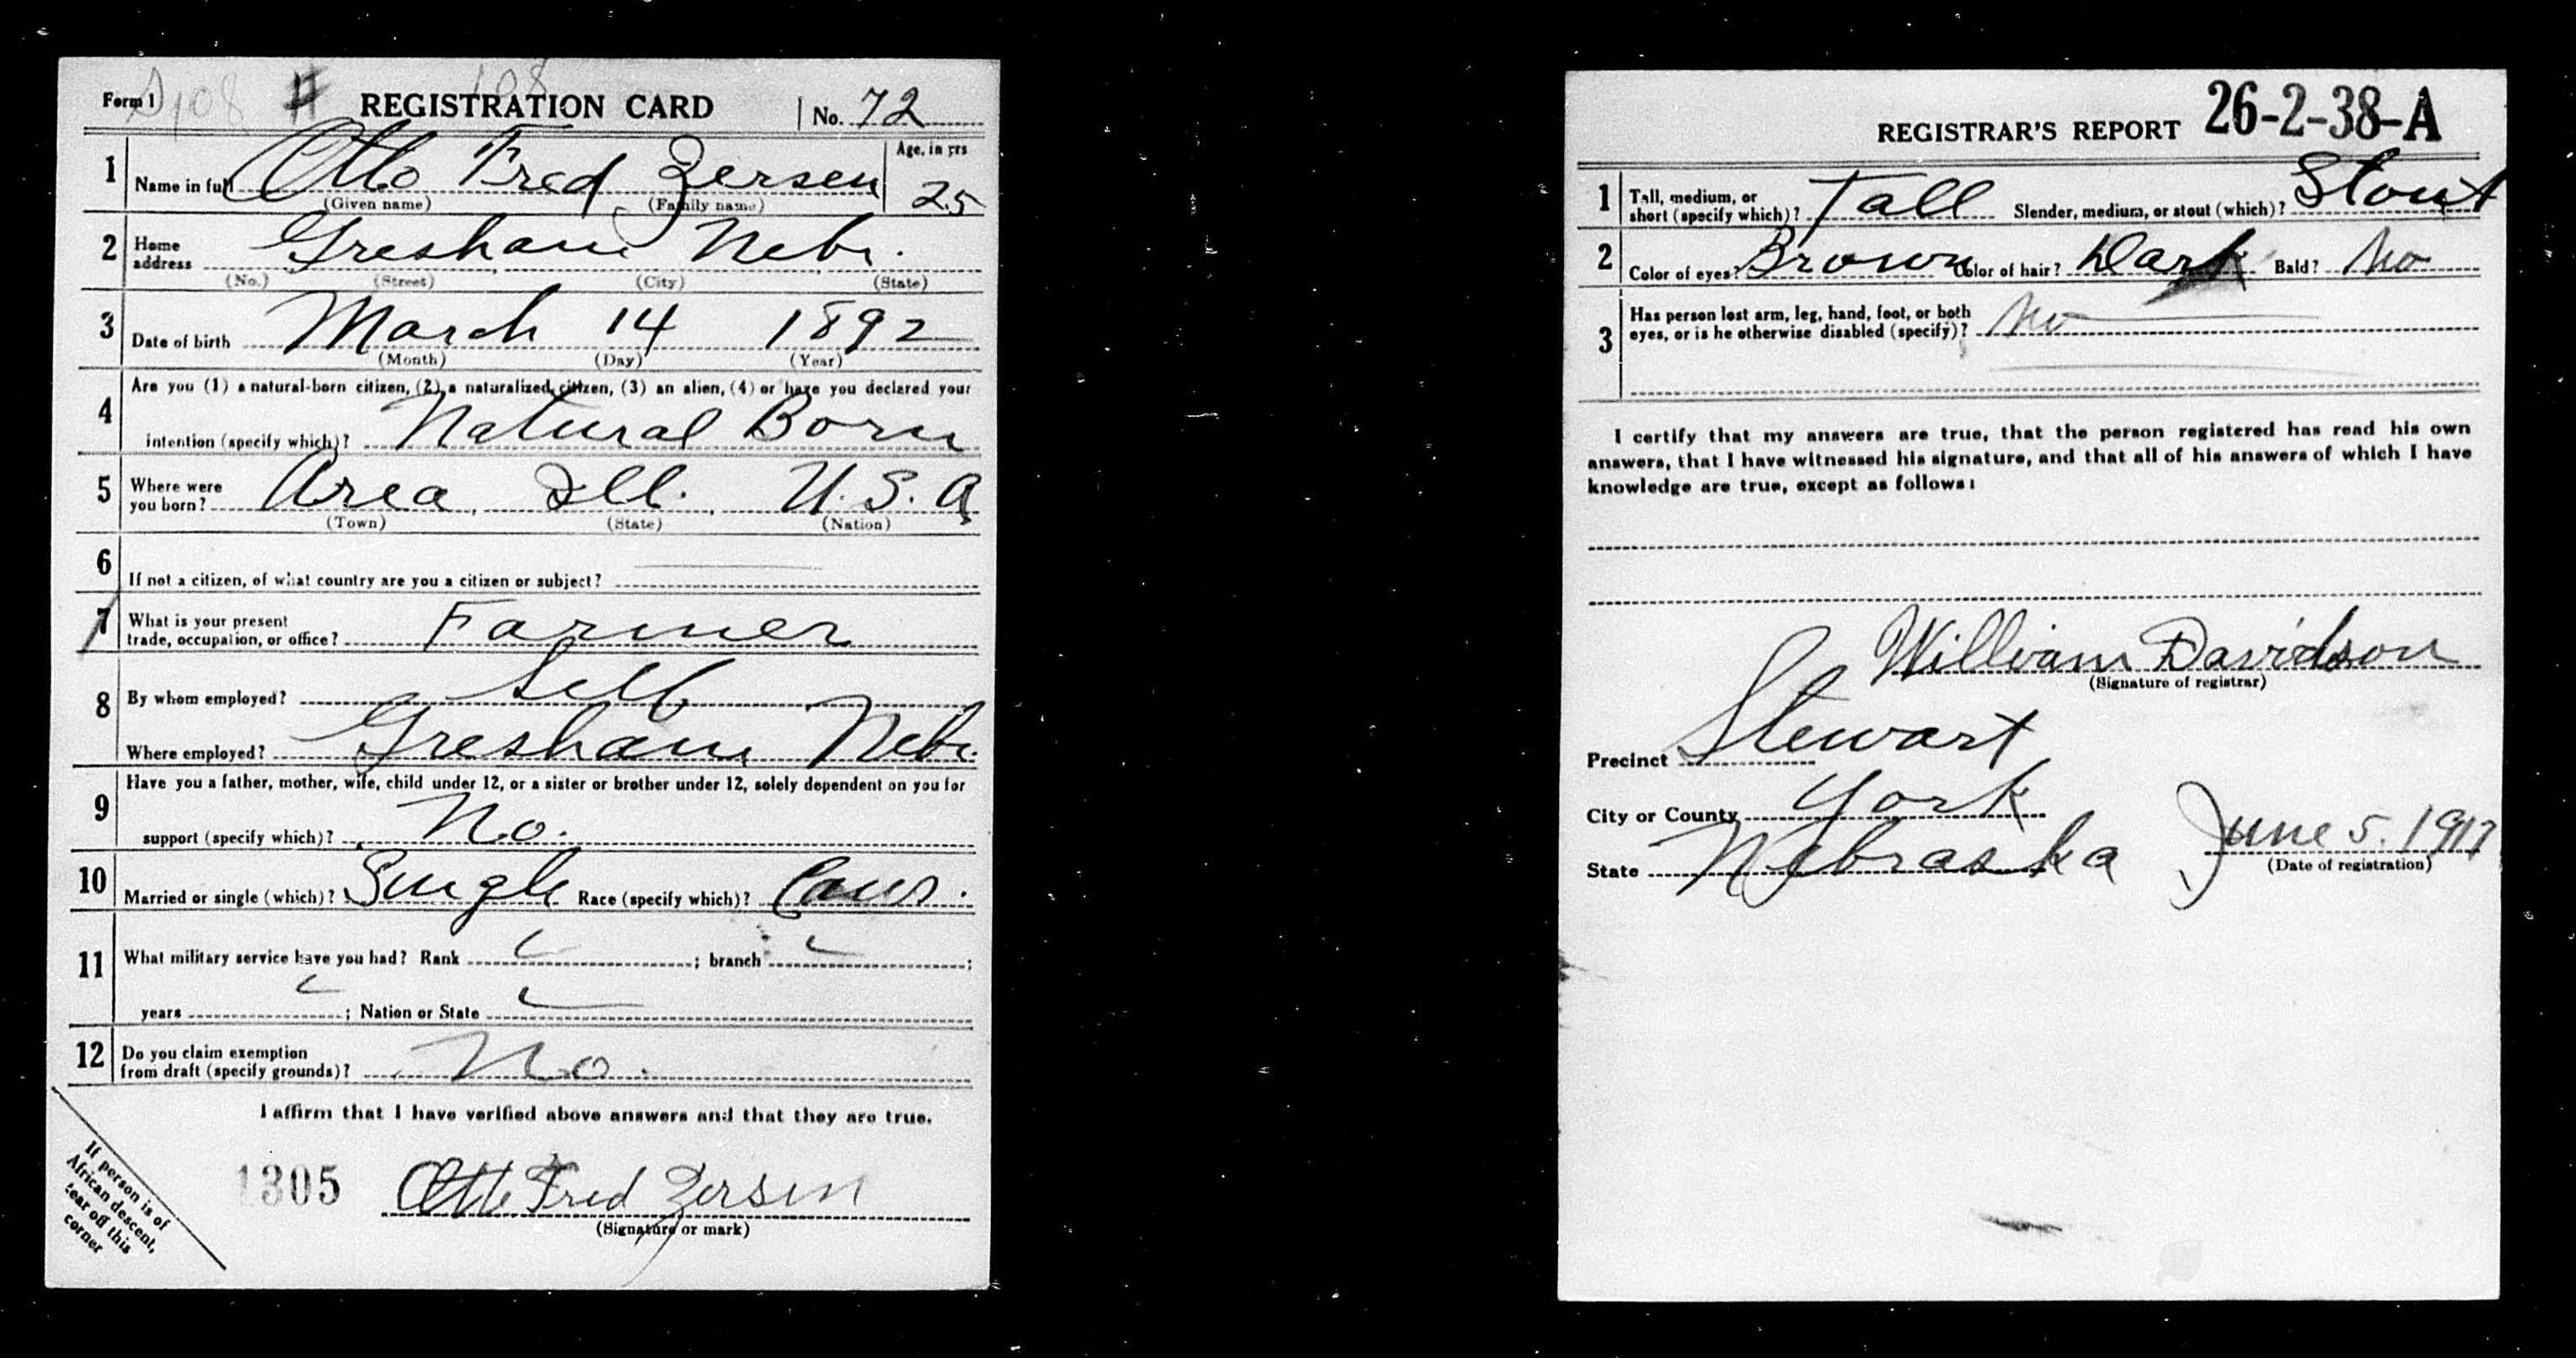 Form 1 108 REGISTRATION CARD No. 72
1 Name in full Otto Fred Zersen Age, in yrs 25
(Given name) (Family name)
2 Home address Gresham Nebr.
(No.) (Street) (City) (State)
3 Date of birth March 14 1892
(Month) (Day) (Year)
4 Are you (1) a natural-born citizen, (2) a naturalized citizen, (3) an alien, (4) or have you declared your
intention (specify which)? Natural Born
5 Where were you born? Area, Ill. U.S.A
(Town) (State) (Nation)
6 If not a citizen, of what country are you a citizen or subject?
7 What is your present
trade, occupation, or office? Farmer
8 By whom employed? Self
Where employed? Gresham Nebr.
9 Have you a father, mother, wife, child under 12, or a sister or brother under 12, solely dependent on you for
support (specify which)? No.
10 Married or single (which)? Single Race (specify which)? Caus.
11 What military service have you had? Rank ; branch ;
years ; Nation or State
12 Do you claim exemption
from draft (specify grounds)? No.
I affirm that I have verified above answers and that they are true.
1305 Otto Fred Zersen
(Signature or mark)
If person is of
African descent,
tear off this
corner
REGISTRAR'S REPORT 26-2-38-A
1 Tall, medium, or
short (specify which)? Tall Slender, medium, or stout (which)? Stout
2 Color of eyes? Brown Color of hair? Dark Bald? No
3 Has person lost arm, leg, hand, foot, or both
eyes, or is he otherwise disabled (specify)? No
I certify that my answers are true, that the person registered has read his own
answers, that I have witnessed his signature, and that all of his answers of which I have
knowledge are true, except as follows:
William Davidson
(Signature of registrar)
Precinct Stewart
City or County York
State Nebraska June 5. 1917
(Date of registration)